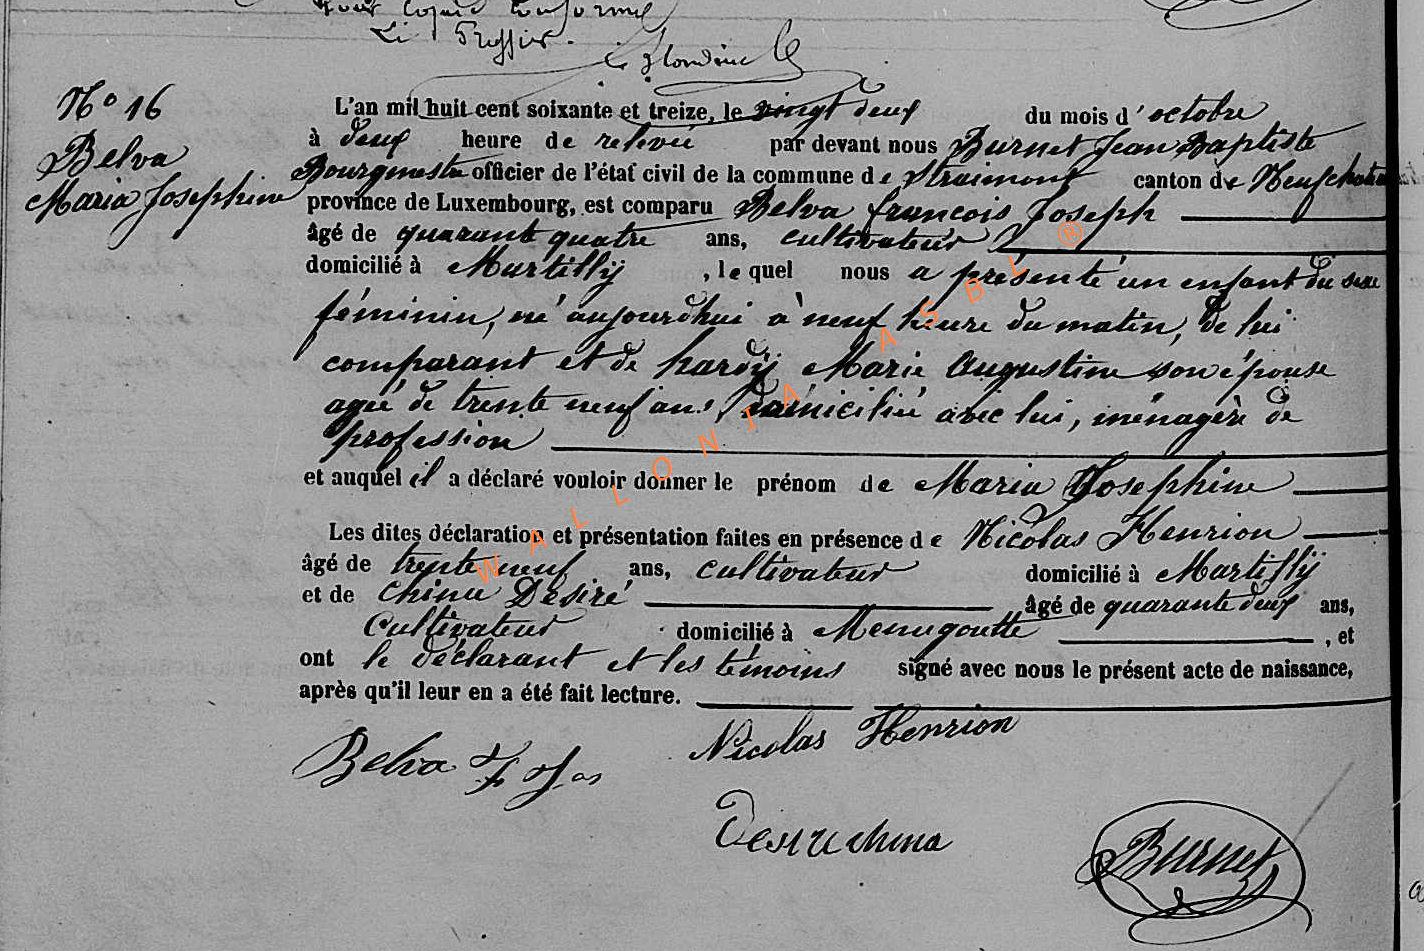 pour copie conforme
Le Greffier.
N° 16
Belva
Maria Josephine
L'an mil huit cent soixante et treize, le vingt deux du mois d'octobre
à deux heure de relevée par devant nous Burnet Jean Baptiste
Bourgmestre officier de l'état civil de la commune de Straimont canton de Neufchateau
province de Luxembourg, est comparu Belva françois Joseph
âgé de quarante quatre ans, cultivateur
domicilié à Martilly, lequel nous a présenté un enfant du sexe
féminin, né aujourdhui à neuf heure du matin, de lui
comparant et de hardÿ Marie Augustine son épouse
agée de trente neuf ans domiciliée avec lui, ménagère de
profession
et auquel il a déclaré vouloir donner le prénom de Maria Josephine
Les dites déclaration et présentation faites en présence de Nicolas Henrion
âgé de trente neuf ans, cultivateur domicilié à Martilly
et de Chinu Désiré âgé de quarante deux ans,
Cultivateur domicilié à Menugoutte, et
ont le déclarant et les témoins signé avec nous le présent acte de naissance,
après qu'il leur en a été fait lecture.
Belva F Jos
Nicolas Henrion
Burnet
WALLONIA ASBL ®